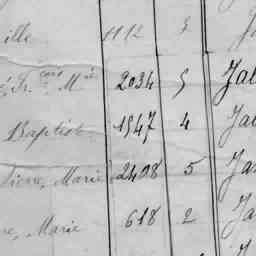 ille 1112 3 Ja
2034 5 Jal
Baptiste 1547 4 Jal
Pierre, Marie 2408 5 Ja
re, Marie 618 2 Ja